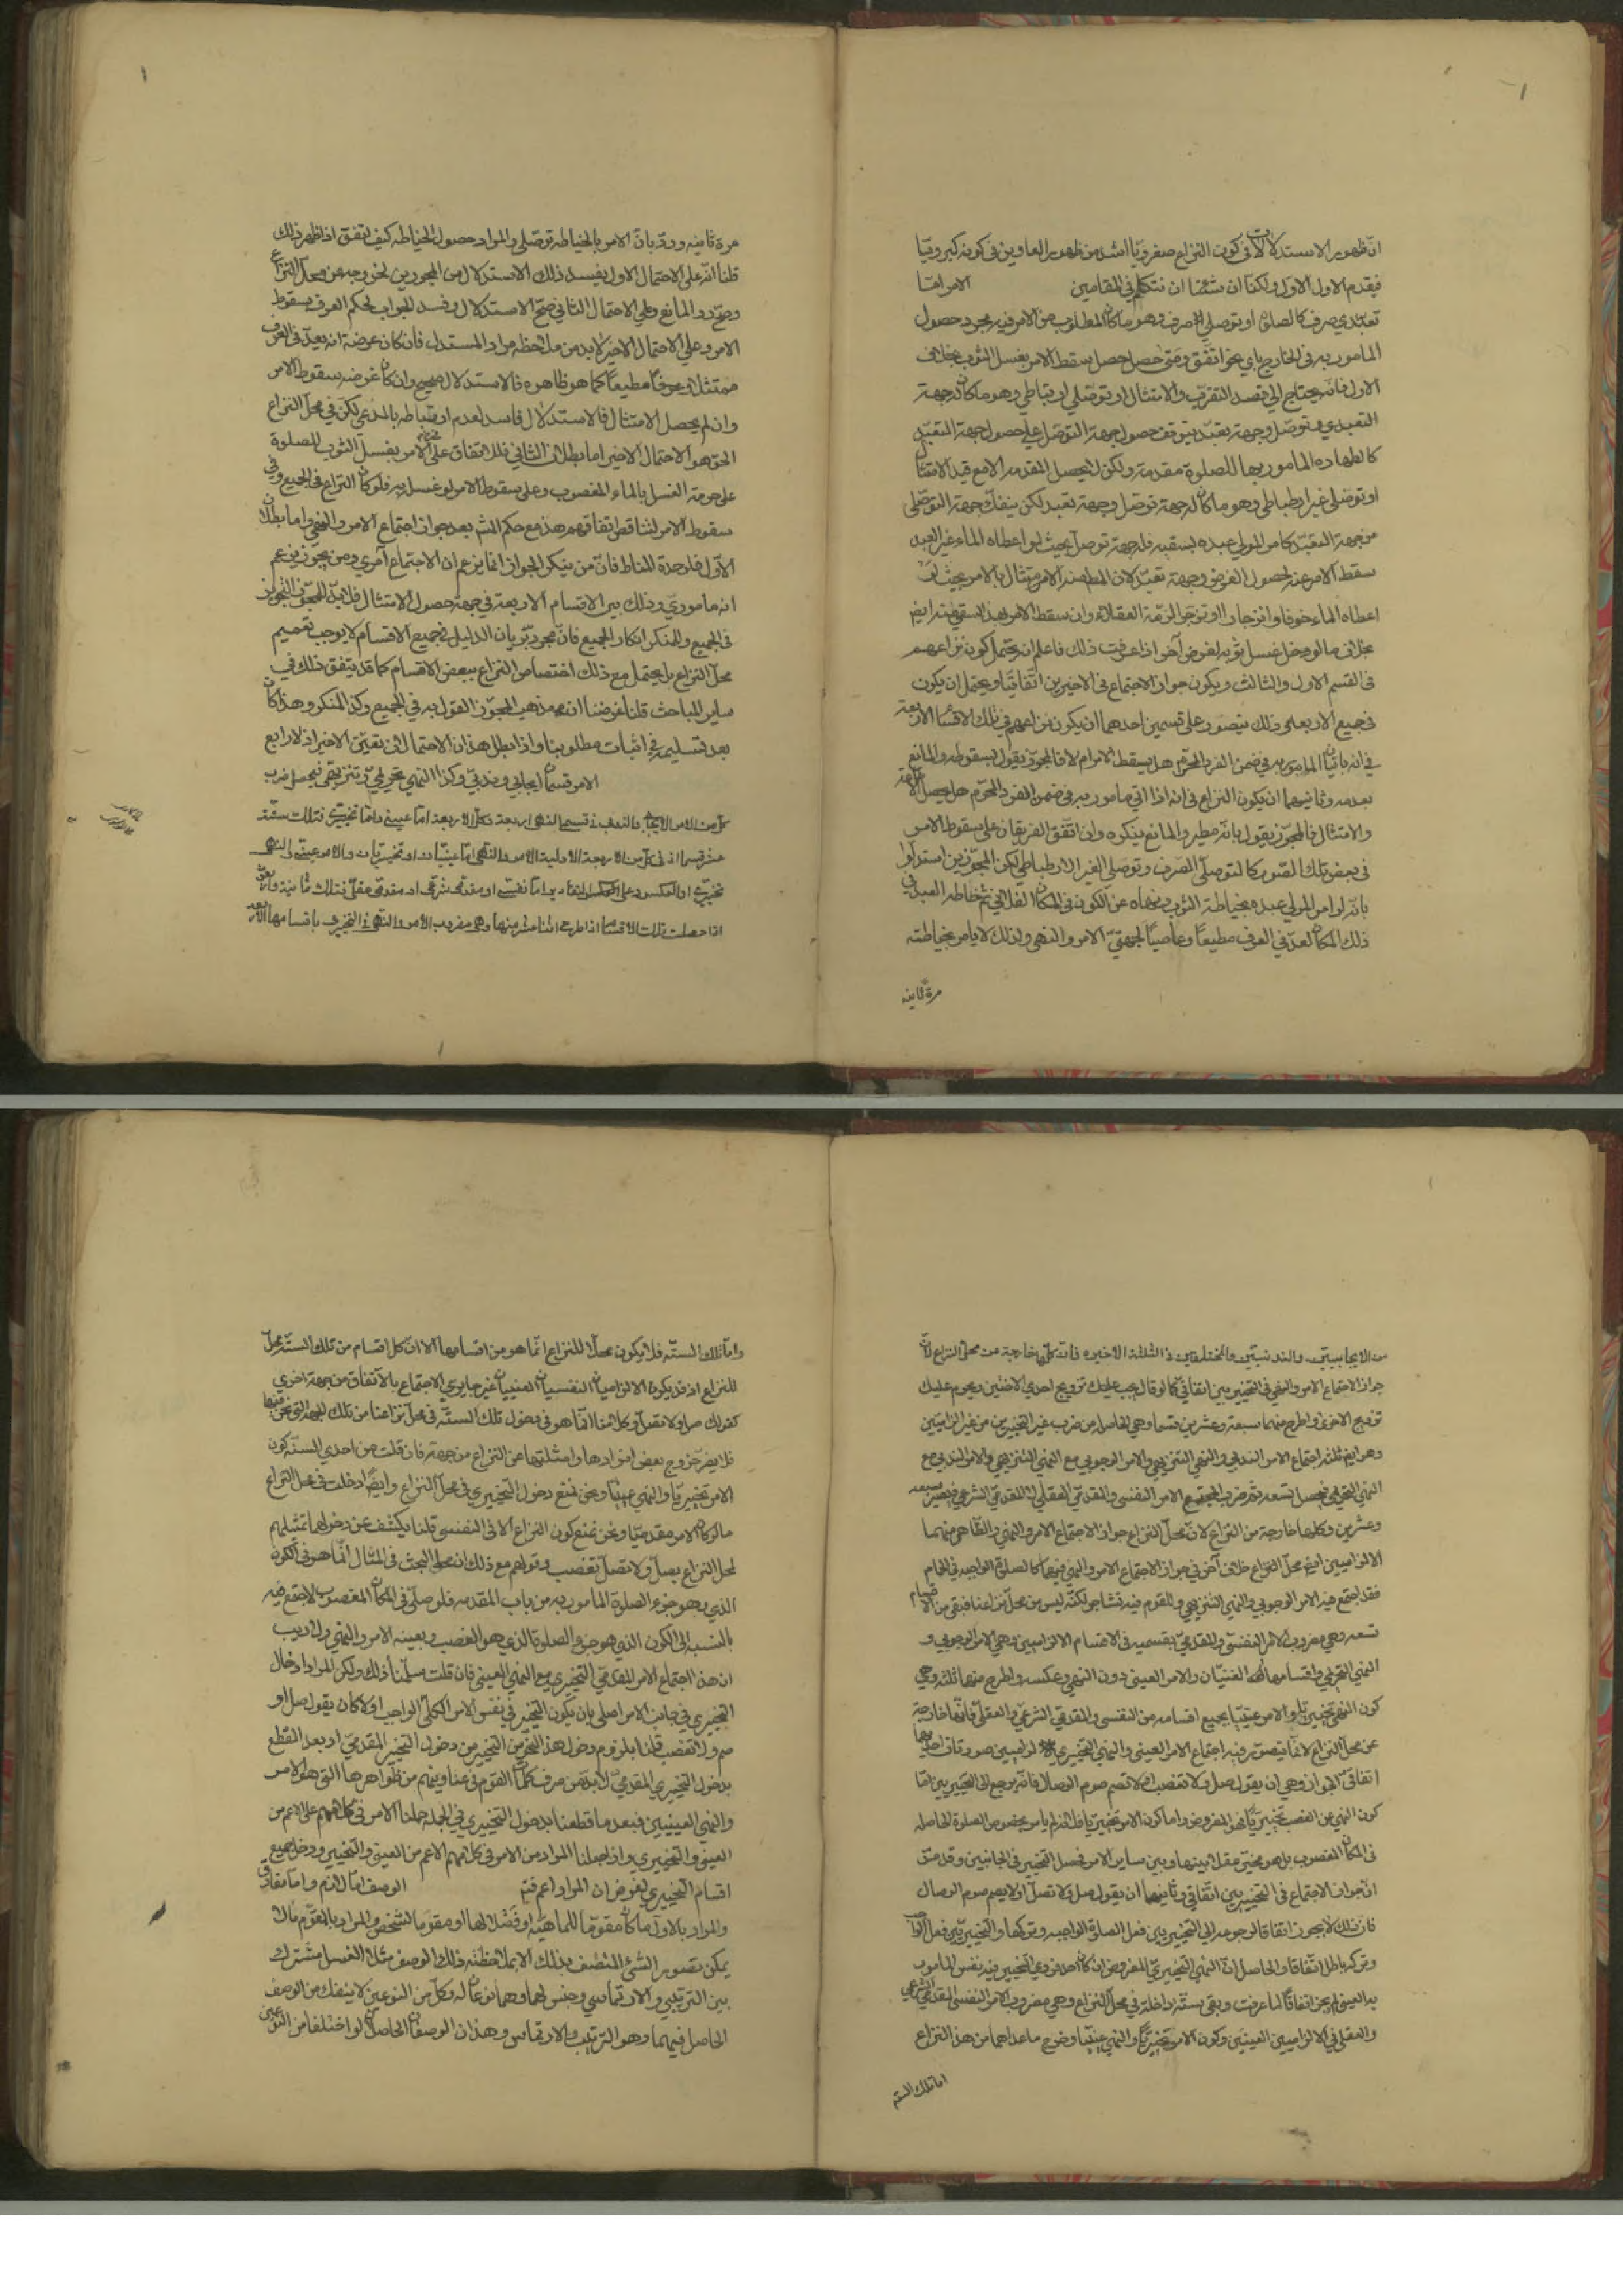 انّ ظهور الاستدلالات في كون النزاع صغرويّا اشد من ظهور العناوين في كونه كبرويّا
فيقدم الاول الاول ولكنا ان شئنا ان نتكلم في المقامين الامر امّا
تعبّدي صرف كالصلوة او توصلي صرف وهو ما كان المطلوب من الامر فيه مجرد حصول
المامور به في الخارج باي نحو اتفق ومتى حصل حصل سقط الامر بغسل الثوب بخلاف
الاول فانه يحتاج الى قصد التقرب والامتثال او توصلي ارتباطي وهو ما كان له جهة
التعبدي وتوصل وجهة تعبّد يتوقف حصول جهة التوصّل على حصول جهة التعبّد
كالطهارة المامور بها للصلوة مقدمة ولكن لا يحصل المقدمه الا مع قيد الامتثال
او توصلي غير ارتباطي وهو ما كان له جهة توصّل وجهة تعبد لكن ينفك جهة التوصّلي
من جهة التعبّد كامر المولى عبده بسقيه فله جهة توصل بحيث لو اعطاه الماء غير العبد
سقط الامر عنه لحصول الغرض وجهة تعبّد لان الامر امتثال بالامر بحيث لو
اعطاه الماء خوفا وانزجارا لذمّه العقلاء وان سقط الامر بهذا السقي عنه ايض
بخلاف ما لو دخل غسل ثوبه لغرض آخر اذا عرفت ذلك فاعلم انه يحتمل كون نزاعهم
في القسم الاول والثالث ويكون جواز الاجتماع في الاخيرين اتفاقيّا ويحتمل ان يكون
في جميع الاربعه وذلك يتصور على قسمين احدهما ان يكون نزاعهم في تلك الاقسام الاربعة
في انه باتيان المامور به في ضمن الفرد المحرّم هل يسقط الامر ام لا فالمجوّز يقول بسقوطه والمانع
بعدمه وثانيهما ان يكون النزاع في انه اذا اتى مامور به في ضمن الفرد المحرم هل يحصل الاطاعة
والامتثال فالمجوّز يقول بانّه مطيع والمانع ينكره وان اتفق الفريقان على سقوط الامر
في بعض تلك الصّور كالتوصلّي الصّرف وتوصلي الغير الارتباطي لكن المجوّزين استدلوا
بانّه لو امر المولى عبده بخياطة الثوب ونهاه عن الكون في المكان الفلاني ثم خاطه العبد في
ذلك المكان لعدّ في العرف مطيعا وعاصيا لجهتيّ الامر والنهي ولذلك لا يامر بخياطته
مرة ثانيه
مرة ثانيه وردّ بانّ الامر بالخياطه توصلي والمراد حصول الخياطه كيف اتفق اذا ظهر ذلك
قلنا انّه على الاحتمال الاول يفسد ذلك الاستدلال من المجوزين لخروجه عن محل النزاع
وصحّ ردّ المانع وعلى الاحتمال الثاني صحّ الاستدلال وفسد الجواب لحكم العرف بسقوط
الامر وعلى الاحتمال الاخير لابد من ملاحظه مراد المستدل فان كان غرضه انه يعدّ في العرف
ممتثلا وعرفا مطيعا كما هو ظاهره فالاستدلال صحيح وان كان غرضه سقوط الامر
وان لم يحصل الامتثال فالاستدلال فاسد لعدم ارتباطه بالمدعي لكن في محل النزاع
الحق هو الاحتمال الاخير اما بطلان الثاني فللاتفاق على الامر بغسل الثوب للصلوة
على حرمة الغسل بالماء المغصوب وعلى سقوط الامر لو غسل به فلو كان النزاع في الجميع وفي
سقوط الامر لتناقض اتفاقهم هذا مع حكم بعدم جواز اجتماع الامر والنهي واما بطلان
الاوّل فلوحدة المناط فانّ من ينكر الجواز انما يزعم ان الاجتماع آمري ومن يجوّز يزعم
انه ماموري وذلك بين الاقسام الاربعة في جهة حصول الامتثال فلابد للمجوّز التجويز
في الجميع وللمنكر انكار الجميع فانّ مجرد جريان الدليل في جميع الاقسام لا يوجب تعميم
محل النزاع بل يحتمل مع ذلك اختصاص النزاع ببعض الاقسام كما قد يتفق ذلك في
ساير المباحث قلنا غرضنا ان مذهب المجوّز القول به في الجميع وكذا المنكر وهذا كان
بعد تسليمه في اثبات مطلوبنا واذا بطل هذان الاحتمالان تعيّن الاخير اذ لا رابع
الامر قسمان ايجابي وندبيّ وكذا النهي تحريميّ وتنزيهيّ فيحصل ضرب
كل من الامر الايجابي والندبي في قسمي النهي اربعة وكل الاربعة اما عيني واما تخييري فتلك ستة
عشر قسما اذ في كل من الاربعة الاولية الامر والنهي اما عينيّان او تخييريان والامر عيني والنهي
تخييري او بالعكس وعلى التقادير اما نفسي او مقدمي شرعي او مقدمي عقلي فتلك ثمانية واربعون
اذا حصلت تلك الاقسام اذا طرح اثنا عشر منها وهي مضروب الامر والنهي التخييري باقسامها الاربعة
من الايجابيين والندبيين والمختلفين في الثلثة الاخيره فان كلّها خارجة عن محل النزاع لانّ
جواز الاجتماع الامر والنهي في التخييريين اتفاقي كما لو قال يجب عليك تزويج احدى الاختين ويحرم عليك
تزويج الاخرى واطرح منهما سبعة وعشرين قسما وهي الحاصل من ضرب غير التخييرين من غير الزاميّين
وهو ايض ثلثه اجتماع الامر الندبي والنهي التنزيهي والامر الوجوبي مع النهي التنزيهي والامر الندبي مع
النهي التحريمي فيحصل تسعه ثم ضرب المجتمع الامر النفسي والمقدمي العقلي والمقدمي الشرعي فيصير سبعه
وعشرين وكلها خارجة من النزاع لان محل النزاع جواز الاجتماع الامر والنهي والظاهر منهما
الالزاميين ايض محل النزاع خلاف آخر في جواز الاجتماع الامر والنهي فيها كالصلوة الواجبه في الحمام
فقد اجتمع فيه الامر الوجوبي والنهي التنزيهي وللقوم فيه تشاجر لكنّه ليس من محل نزاعنا فبقى من الاقسام
تسعه وهي مضروب الامر النفسيّ والمقدميّ بقسميه في الاقسام الالزاميين وهي الامر الوجوبي و
النهي التحريمي واقسامها العينيّان والامر العيني دون النهي وعكسه واطرح منها ثلثه وهي
كون النهي تخييريّا والامر عينيّا بجميع اقسامه من النفسي والمقدمي الشرعي والعقلي فانّها خارجة
عن محل النزاع لانّما يتصور فيه اجتماع الامر العيني والنهي التخييري الالزاميين صورتان احديهما
اتفاقيّ الجواز وهي ان يقول صل ولا تغصب او لا تصم صوم الوصال فانّه يرجع الى التخيير بين امّا
كون النهي عن الغصب تخييريّا فهو المفروض واما كون الامر تخييريّا فلانه لم يامر بخصوص الصلوة الحاصله
في المكان المغصوب بل هو مخيّر عقلا بينها وبين ساير الامر فحصل التخيير في الجانبين وقد مرّ
انّ جواز الاجتماع في التخييريين اتفاقي وثانيهما ان يقول صل ولا تصل او لا تصم صوم الوصال
فان ذلك لا يجوز اتفاقا لرجوعه الى التخيير بين فعل الصلوة الواجبه وتركها والتخيير بين فعل الواجب
وتركه باطل اتفاقا والحاصل انّ النهي التخييريّ المفروض ان كان احد فردي التخيير فيه نفس المامور
به العيني لم يجز اتفاقا لما عرفت وبقى ستّه داخله في محل النزاع وهي مضروب الامر النفسي المقدمي الشرعي
والعقلي في الالزاميين العينيين وكون الامر تخييريّا والنهي عينيّا وخرج ماعداها من هذا النزاع
اما تلك الستة
واما تلك الستّه فلا يكون محلا للنزاع انّما هو من اقسامها الا ان كل اقسام من تلك الستّه محلّ
للنزاع اذ قد يكون الالزاميان النفسيان العينيان غير جايزي الاجتماع بالاتفاق من جهة اخرى
كقولك صل ولا تصل وكلامنا انّما هو في دخول تلك الستّه في محل نزاعنا من تلك الجهه التي نحن فيها
فلا يضر خروج بعض افرادها وامثلتها عن النزاع من جهة فان قلت من احدى الستّه كون
الامر تخييريّا والنهي عينيّا ونحن نمنع دخول التخييري في محل النزاع وايضا ادخلت في محل النزاع
ما لو كان الامر مقدميّا ونحن نمنع كون النزاع الا في النفسي قلنا يكشف عن دخولهما تمثيلهم
لمحل النزاع بصلّ ولا تصل تغصب وقولهم مع ذلك ان محل البحث في المثال انّما هو في الكون
الذي هو جزء الصلوة المامور به من باب المقدمه فلو صلّى في المكان المغصوب لاجتمع فيه
بالنسبه الى الكون الذي هو جزء الصلوة الذي هو الغصب وبعينه الامر والنهي ولا ريب
ان هذا اجتماع الامر المقدمي التخييري مع النهي العيني فان قلت سلّمنا ذلك ولكن المراد ادخال
التخييري في جانب الامر اصلي بان يكون التخيير في نفس الامر الكلّي الواجب اوّلا كان يقول صل او
صم ولا تغصب قلنا بلزوم دخول هذا النحو من التخيير من دخول التخيير المقدميّ اذ بعد القطع
بدخول التخييري المقدميّ لابدّ من صرف كلمات القوم في عناوينهم من ظواهرها التي هو الامر
والنهي العينيين فبعد ما قطعنا بدخول التخييري في الجمله حملنا الامر في كلامهم على الاعم من
العيني والتخييري واذا جعلنا المراد من الامر في كلامهم الاعم من العيني والتخييري ودخل جميع
اقسام التخييري لفرض ان المراد اعم فتم الوصف امّا لازم واما مفارق
والمراد بالاول ما كان مقوّما للماهيّه او فصلا لها او مقوّما لشخص والمراد بالمقوّم ما لا
يمكن تصور الشيء المتصف بذلك الا بملاحظة ذلك الوصف مثلا الغسل مشترك
بين الترتيبي والارتماسي وجنس لهما وهما نوعان له وكل من النوعين لا ينفك من الوصف
الحاصل فيهما وهو الترتيب والارتماس وهذان الوصفان الحاصلان لو اختلفا من النوعين